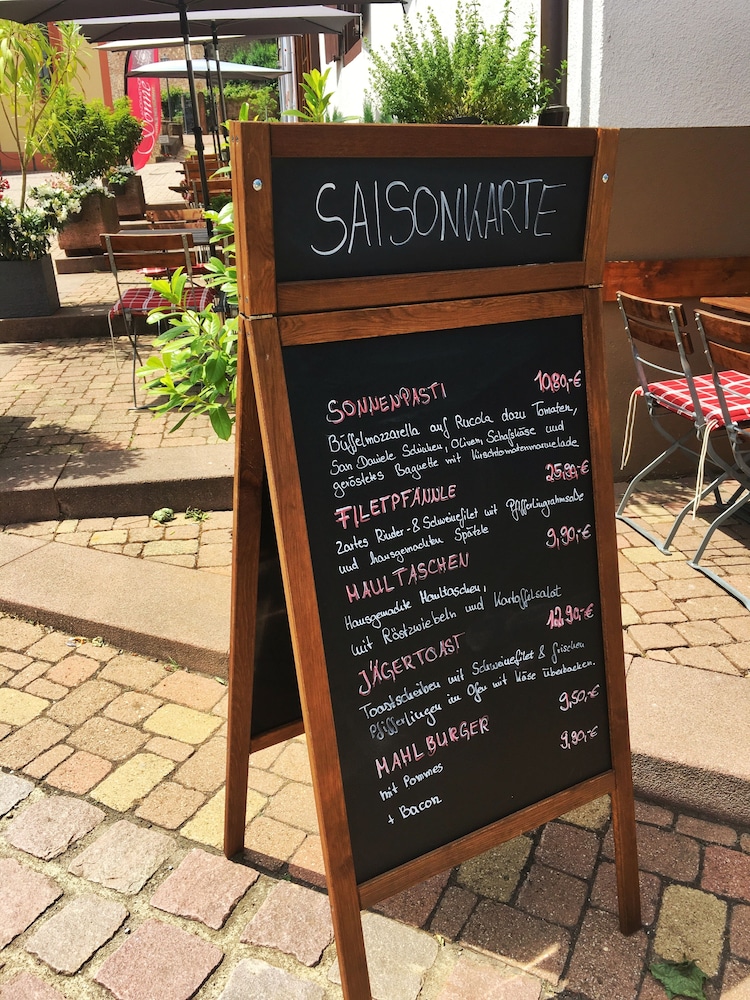 Sonne
SAISONKARTE
SONNENPASTI 10,80,-€
Büffelmozzarella auf Rucola dazu Tomaten,
San Daniele Schinken, Oliven, Schafskäse und
geröstetes Baguette mit Kirschtomatenmarmelade
FILETPFÄNNLE 25,90-€
Zartes Rinder- & Schweinefilet mit Pfifferlingrahmsoße
und hausgemachten Spätzle
MAULTASCHEN 9,90,-€
Hausgemachte Maultaschen,
mit Röstzwiebeln und Kartoffelsalat
JÄGERTOAST 12,90,-€
Toastscheiben mit Schweinefilet & frischen
Pfifferlingen im Ofen mit Käse überbacken.
MAHLBURGER 9,50,-€
mit Pommes
+ Bacon 9,90,-€